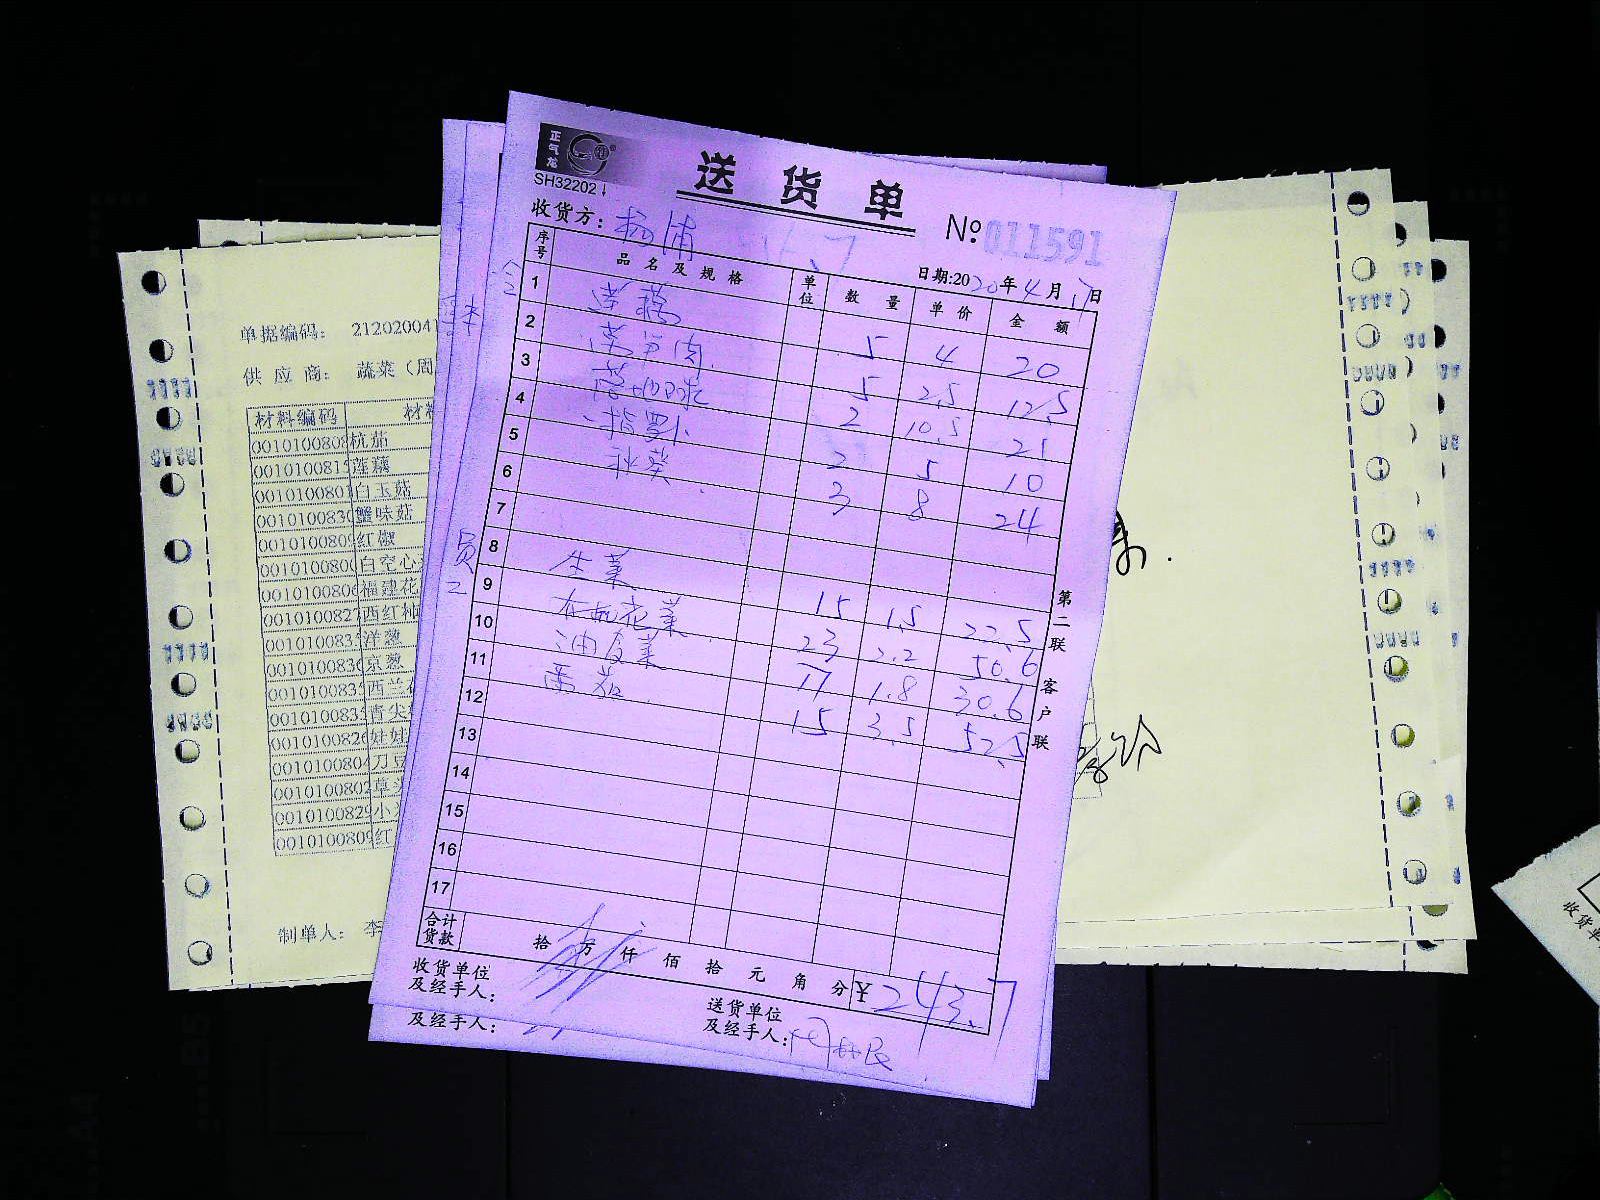 正气龙
SH32202
送货单
№ 011591
收货方: 杨浦
日期:2020年4月17日
序号 品名及规格 单位 数量 单价 金额
1 莲藕 5 4 20
2 5 2.5 12.5
3 2 10.5 21
4 2 5 10
5 秋葵 3 8 24
6
7
8 生菜 15 1.5 22.5
9 有机花菜 23 2.2 50.6
10 油麦菜 17 1.8 30.6
11 番茄 15 3.5 52.5
12
13
14
15
16
17
员工
第二联 客户联
合计货款 拾万仟佰拾元角分 ¥243.7
收货单位及经手人:
送货单位及经手人:
及经手人:
单据编码: 21202004
供应商: 蔬菜(周
材料编码 材料
0010100808 杭茄
001010081 莲藕
001010080 白玉菇
001010083 蟹味菇
001010080 红椒
001010080 白空心
001010080 福建花
001010082 西红柿
001010083 洋葱
001010083 京葱
001010083 西兰
001010083 青尖
001010082 娃娃
001010080 刀豆
001010080 草头
001010082 小
001010080 红
制单人: 李
收货单